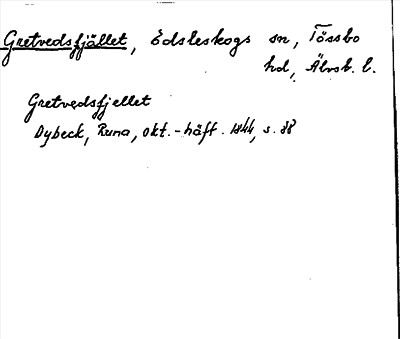 Gretvedsfjället, Edsleskogs sn, Tössbo
hd, Älvsb. l.
Gretvedsfjellet
Dybeck, Runa, okt.-häft. 1844, s. 88